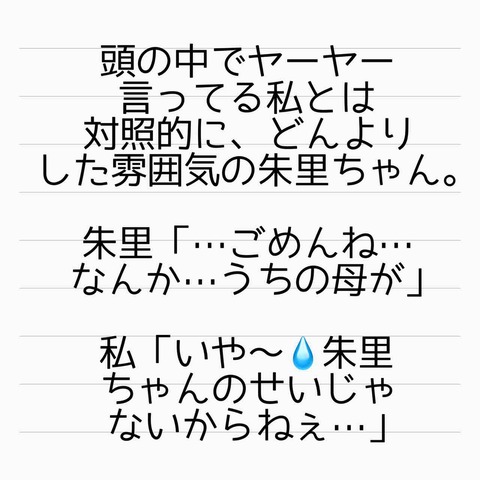 頭の中でヤーヤー
言ってる私とは
対照的に、どんより
した雰囲気の朱里ちゃん。
朱里「…ごめんね…
なんか…うちの母が」
私「いや〜💧朱里
ちゃんのせいじゃ
ないからねぇ…」